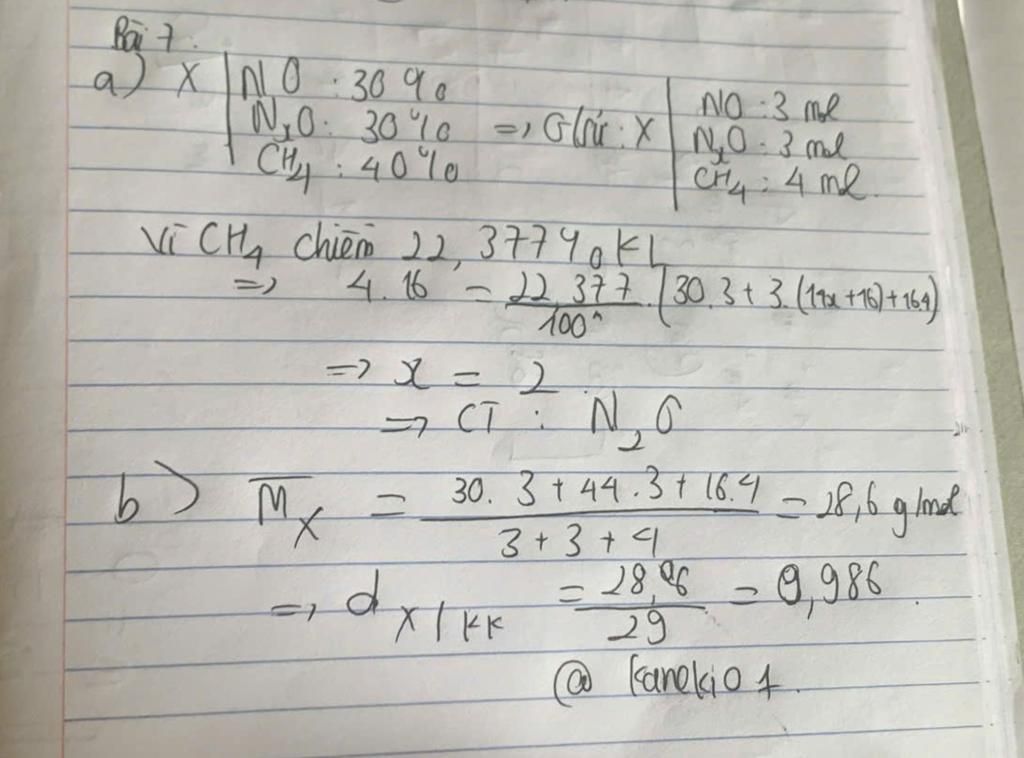 Bài 7.
a) X | NO : 30% | NO : 3 mol
NxO : 30% => G/sử : X | NxO : 3 mol
CH4 : 40% | CH4 : 4 mol
Vì CH4 chiếm 22,377% KL
=> 4.16 = 22,377/100 . (30.3 + 3.(14x+16)+16.4)
=> x = 2
=> CT : N2O
b) M̅X = (30.3 + 44.3 + 16.4)/(3 + 3 + 4) = 28,6 g/mol
=> d X/KK = 28,6/29 = 0,986.
@ kaneki01.